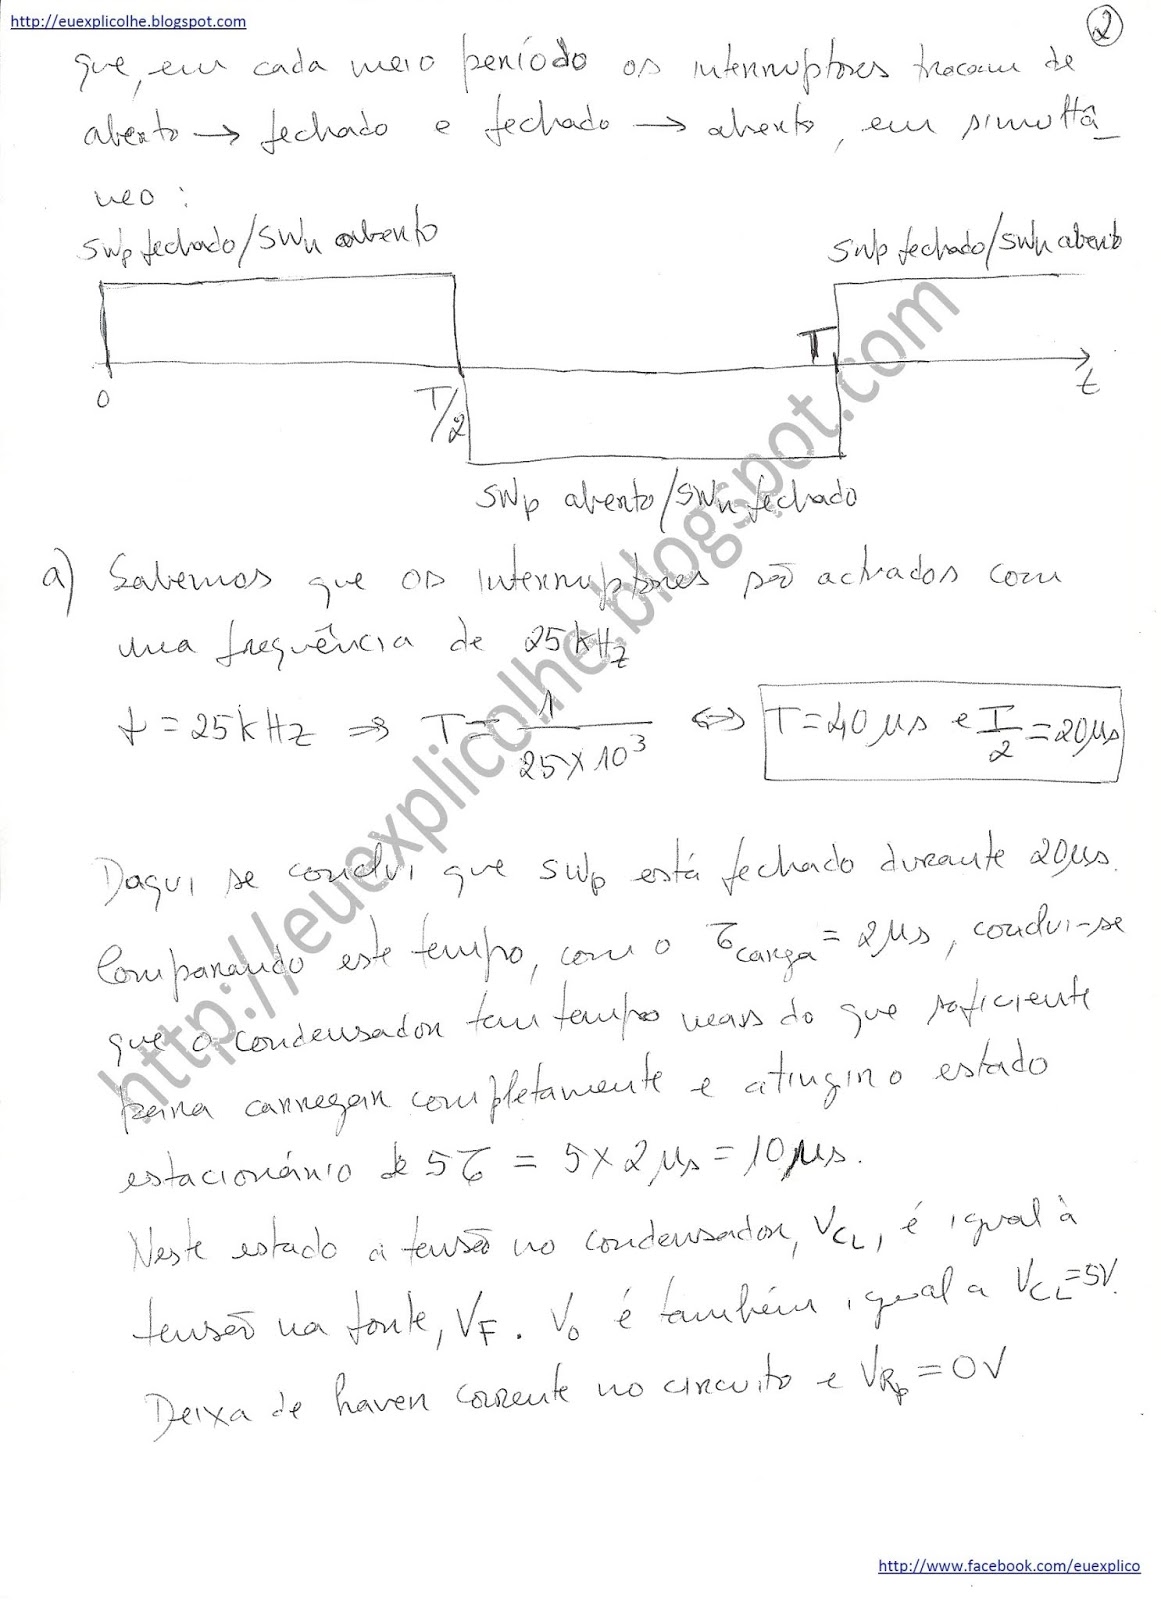 http://euexplicolhe.blogspot.com
2
que, em cada meio período os interruptores trocam de
aberto → fechado e fechado → aberto, em simultâ_
neo:
SWp fechado/SWn aberto
SWp fechado/SWn aberto
T
0
T/2
t
SWp aberto/SWn fechado
a) Sabemos que os interruptores são activados com
uma frequência de 25kHz
f = 25kHz ⇒ T = 1/(25×10³) ⇔ T = 40 μs e T/2 = 20μs
Daqui se conclui que SWp está fechado durante 20μs.
Comparando este tempo, com o τcarga = 2μs, conclui-se
que o condensador tem tempo mais do que suficiente
para carregar completamente e atingir o estado
estacionário de 5τ = 5×2μs = 10μs.
Neste estado a tensão no condensador, VCL, é igual à
tensão na fonte, VF. Vo é também igual a VCL=5V.
Deixa de haver corrente no circuito e VRp = 0V
http://euexplicolhe.blogspot.com
http://www.facebook.com/euexplico